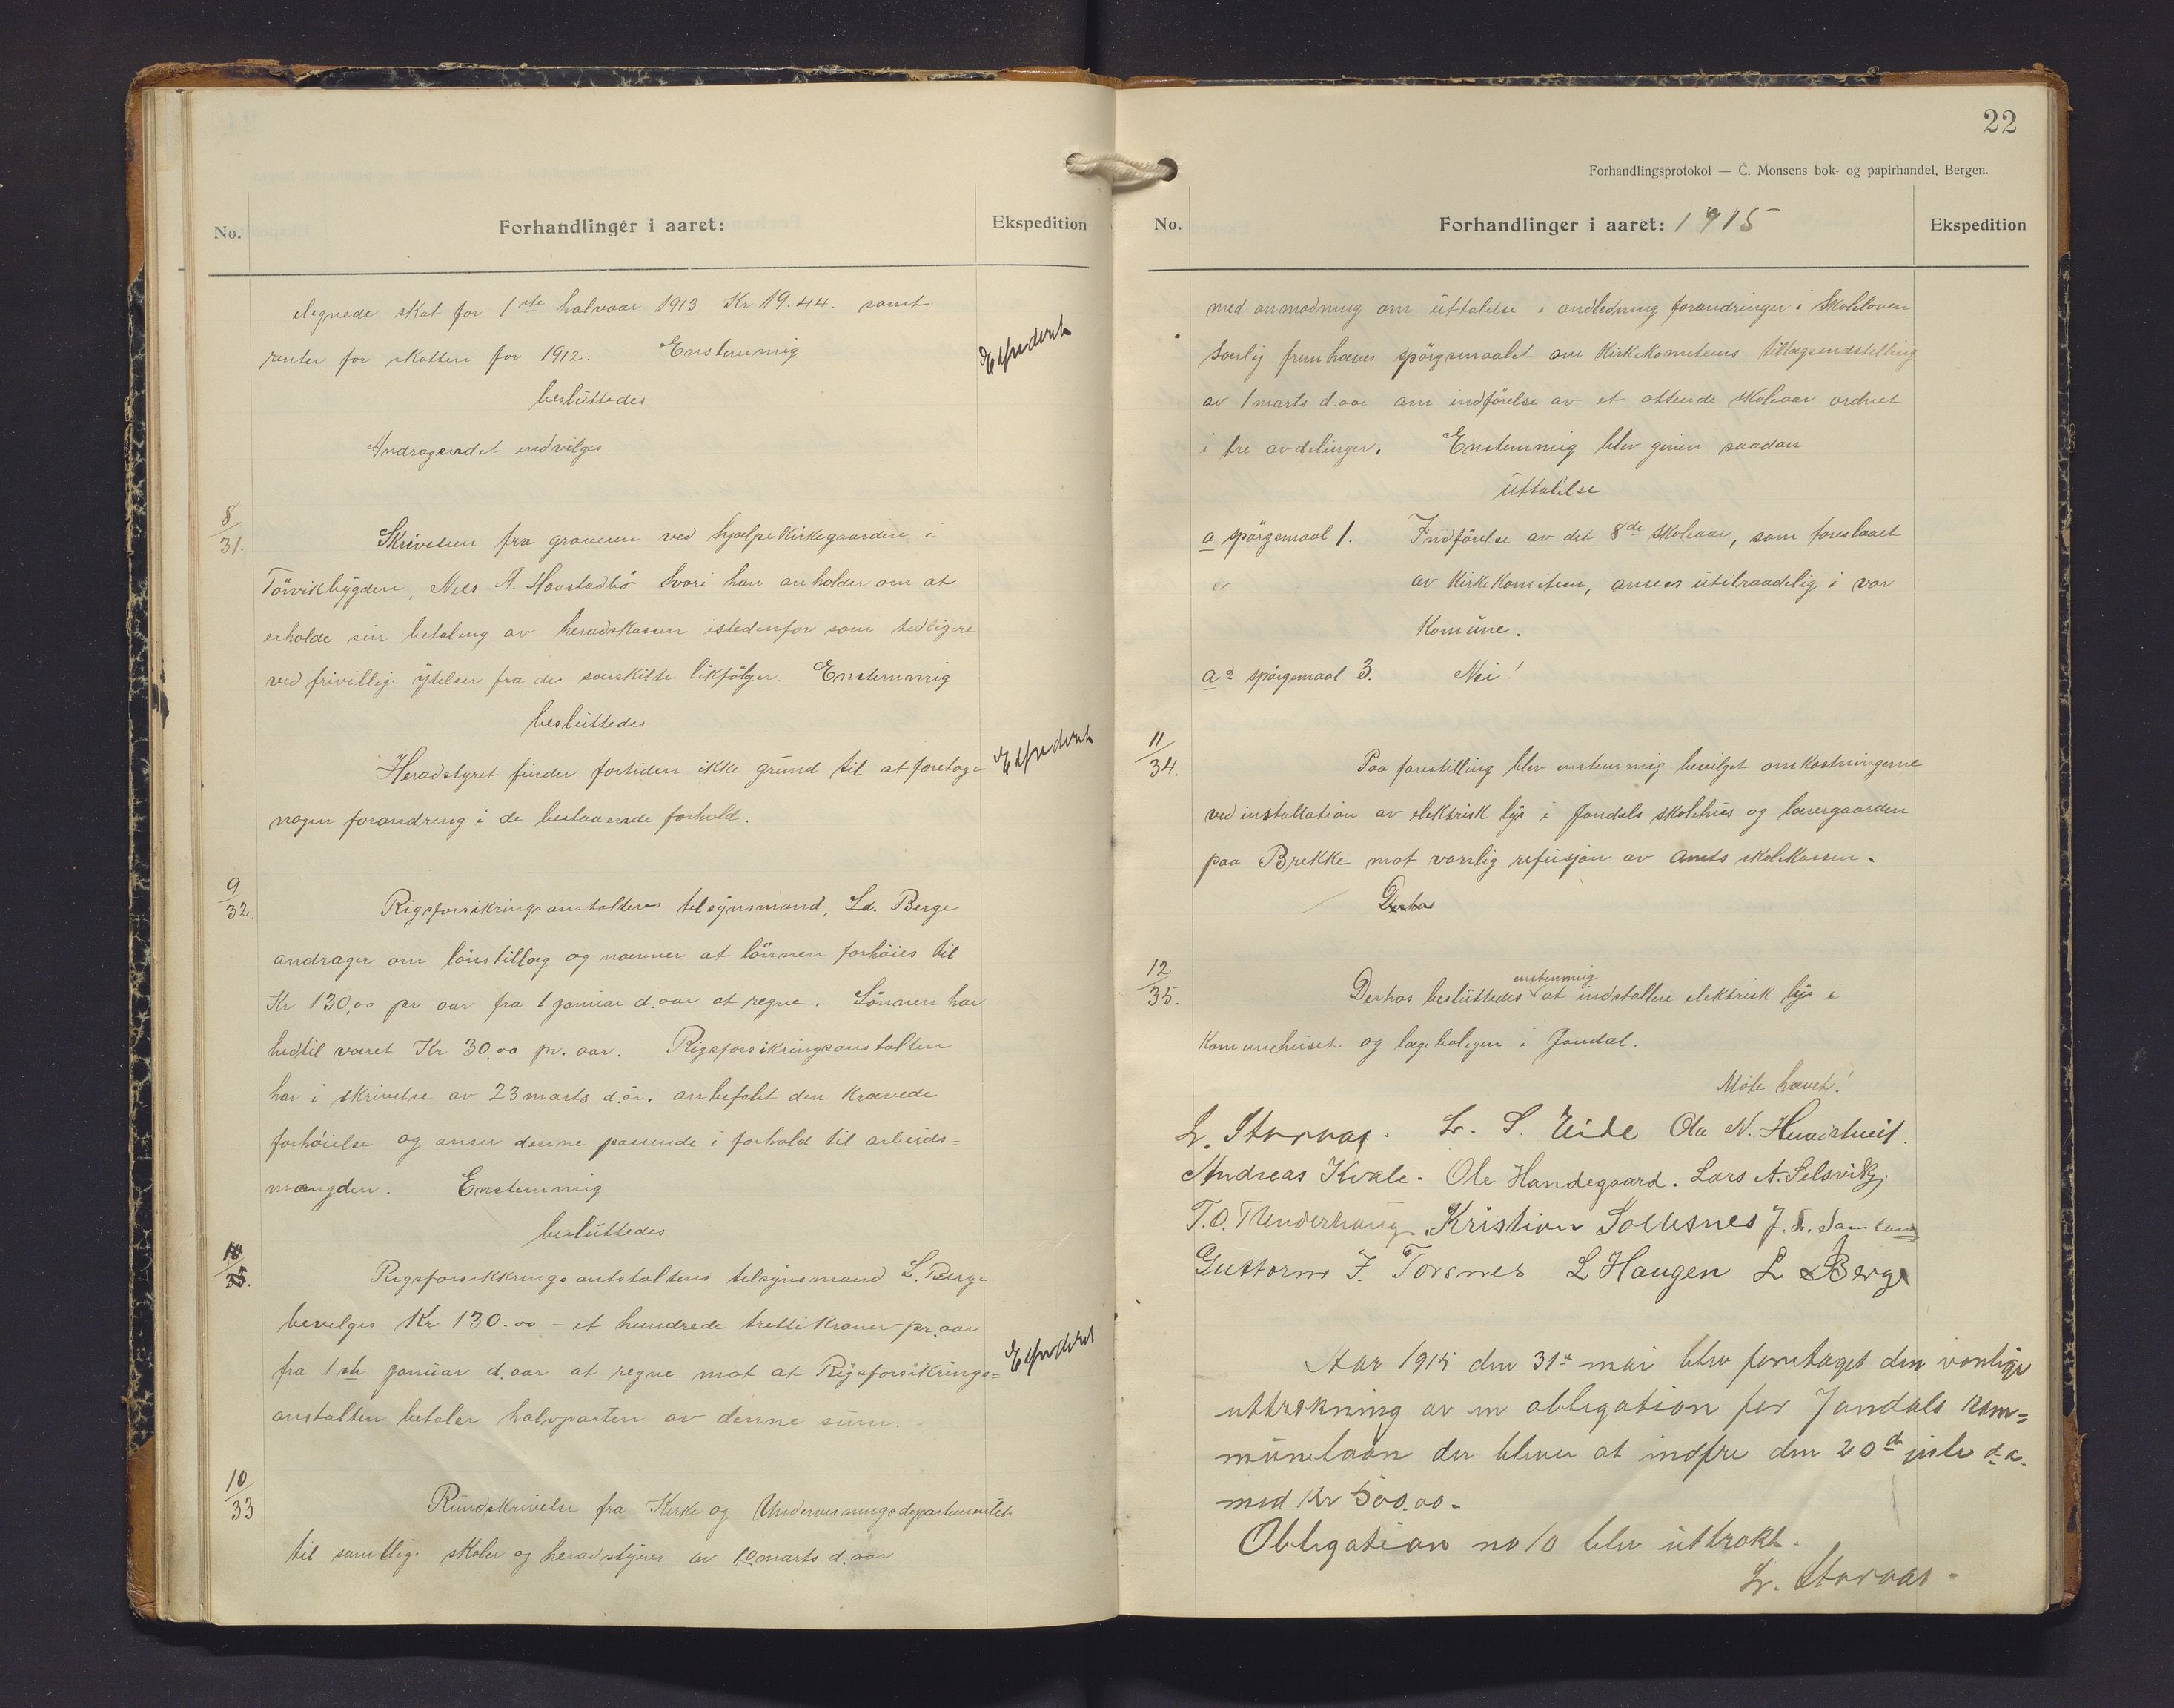 No.
Forhandlinger i aaret:
Ekspedition
elegnede skat for 1ste halvaar 1913 Kr 19.44. samt
renter for skatten for 1912. Enstemmig
besluttedes
Andragendet indvilges.
Expederet
8/31.
Skrivelsen fra graveren ved hjælpekirkegaarden i
Törvikbygden, Nels A. Haastadbö hvori han anholder om at
erholde sin betaling av heradskassen istedenfor som tidligere
ved frivillige ydelser fra de særskilte likfölger. Enstemmig
besluttedes
Heradstyret finder fortiden ikke grund til at foretage
nogen forandring i de bestaaende forhold.
Expederet
9/32.
Rigsforsikringsanstaltens tilsynsmand, Ld. Berge
andrager om lönstillæg og nævner at lönnen forhöies til
Kr 130,00 pr aar fra 1 januar d. aar at regne. Lönnen har
hidtil været Kr 30,00 pr. aar. Rigsforsikringsanstalten
har i skrivelse av 23 marts d. år. anbefalet den krævede
forhöielse og anser denne passende i forhold til arbeids=
mængden. Enstemmig
besluttedes
Rigsforsikkringsantstaltens tilsynsmand L. Berge
bevilges Kr 130.00 - et hundrede tretti Kroner - pr. aar
fra 1ste januar d. aar at regne. mot at Rigsforsikrings=
anstalten betaler halvparten av denne sum.
Expederet
10/33
Rundskrivelse fra Kirke og Undervisningsdepartementet
til samtlige skoler og heradstyrer av 10 marts d. aar
22
Forhandlingsprotokol — C. Monsens bok- og papirhandel, Bergen.
No.
Forhandlinger i aaret: 1915
Ekspedition
med anmodning om uttalelse i andledning forandringer i Skoleloven
Særlig fremhæves spörgsmaalet om Kirkekomiteens tillægsindstilling
av 1 marts d. aar om indförelse av et ottende skoleaar ordnet
i tre avdelinger. Enstemmig blev given saadan
uttalelse
a spörgsmaal 1. Indförelse av det 8de skoleaar, som foreslaaet
av Kirkekomiteen, ansees utilraadelig i vor
Komune.
ad spörgsmaal 3. Nei!
11/34.
Paa forestilling blev enstemmig bevilget omkostningerne
ved installation av elektrisk lys i Jondals skolehus og lærergaarden
paa Brekke mot vanlig refusjon av Amts skolekassen.
Derhos
12/35.
Derhos besluttedes enstemmig at indstallere elektrisk lys i
Kommunehuset og lægeboligen i Jondal.
Möte hævet!
L. Storaas. L. S. Eide Ola N. Hvaistveit.
Andreas Kvale. Ole Handegaard. Lars A. Selsvik.
T. O. Underhaug. Kristian Solesnes J. S. Samland
Guttorm J. Torsnes L Haugen L Berge
Aar 1915 den 31te mai blev foretaget den vanlige
uttrekning av en obligation for Jondals kom=
munelaan der bliver at indfri den 20de juli d. a.
med Kr 500.00.
Obligation no 10 blev uttrokt.
L. Storaas